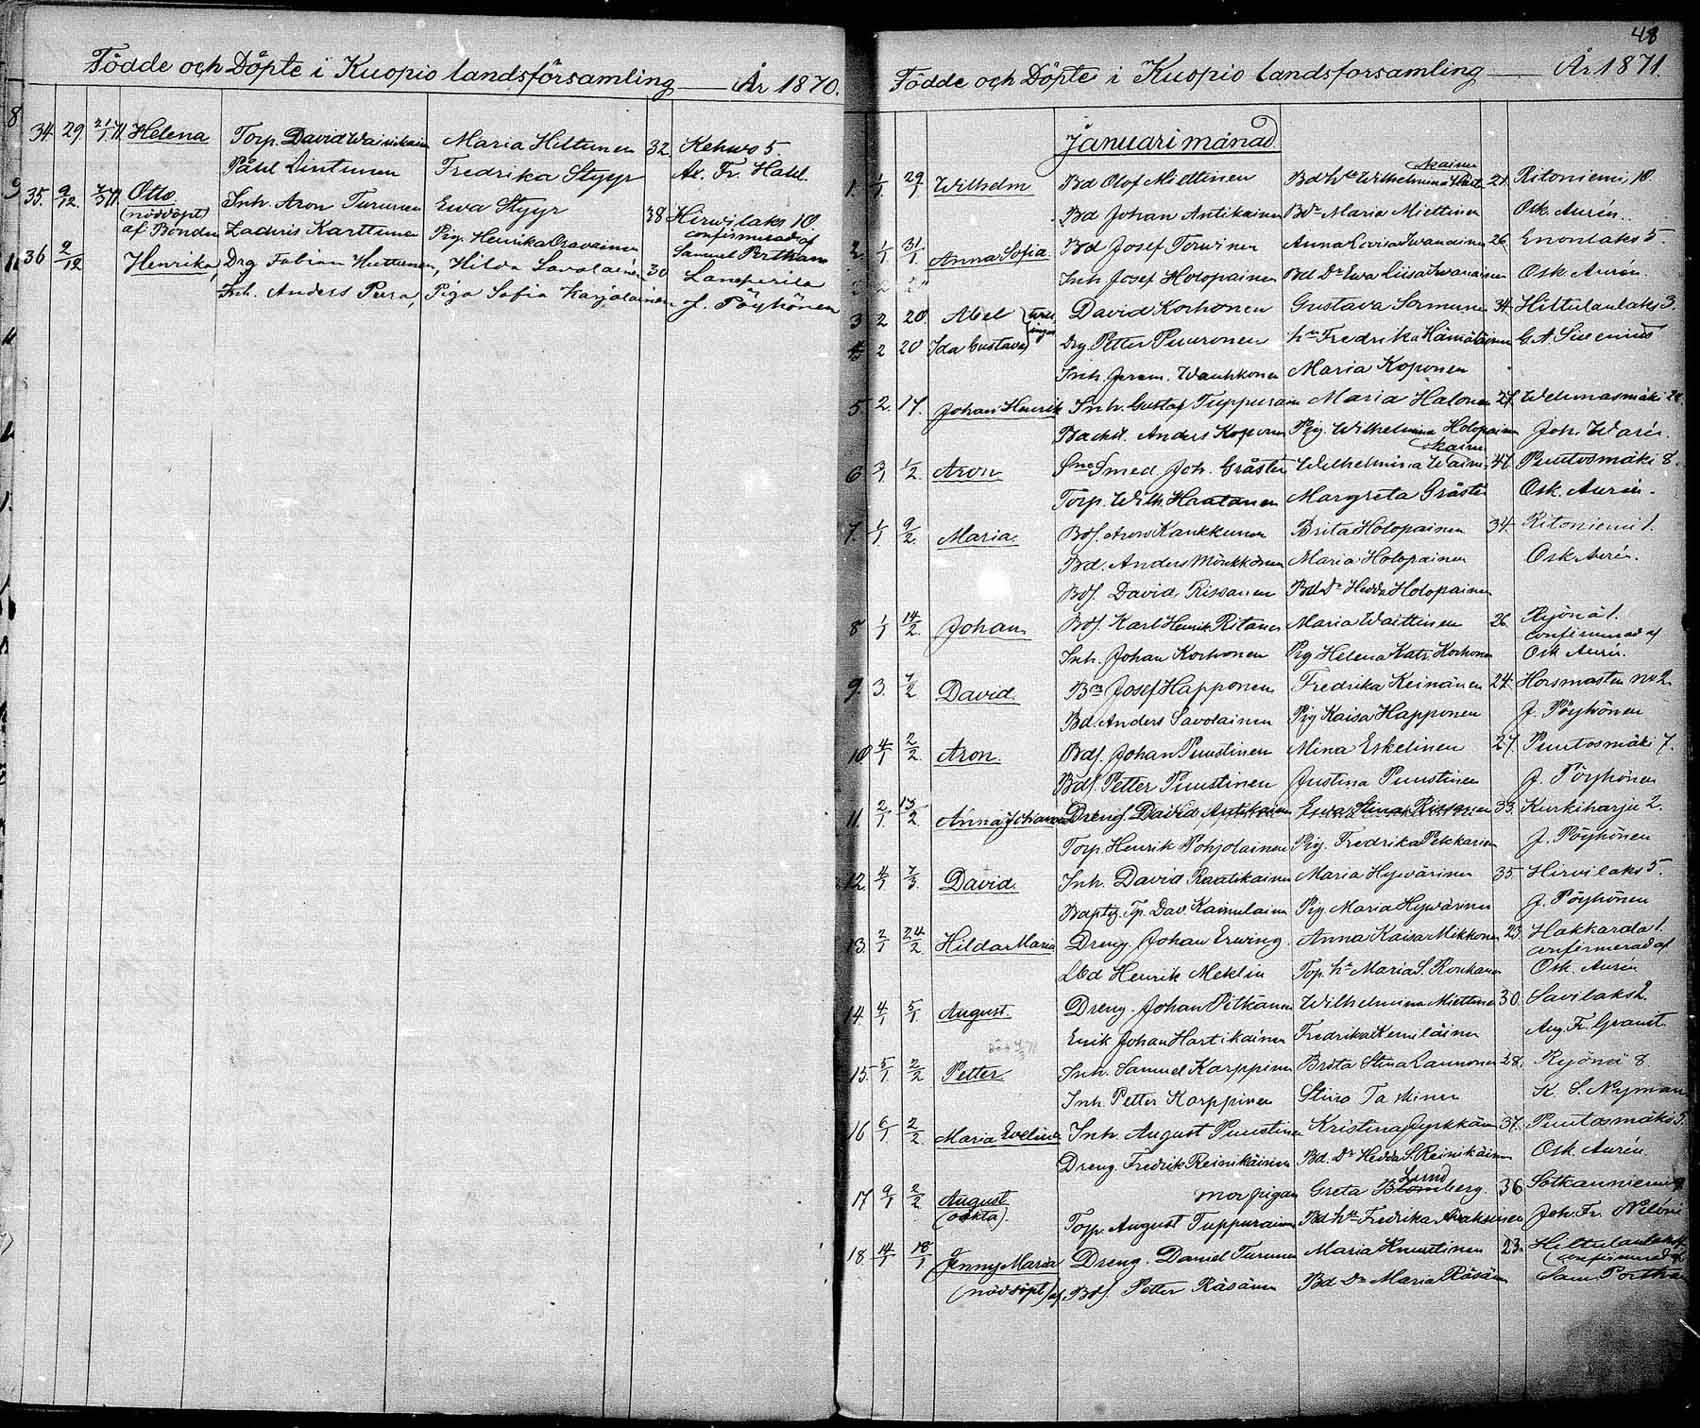 Födde och Döpte i Kuopio landsförsamling — År 1870.
34. 29. 21/1 71 Helena Torp. David Wainikain Maria Hiltunen 32. Kehwo 5
Påhl Lintunen Fredrika Styyr Ax. Fr. Hahl.
35. 9/12. 7/3 71 Otto Inh. Aron Turunen Ewa Styyr 38 Hirwilaks 10.
(nöddöpt) confirmerad af
af Bonden Zachris Karttunen Pig. Henrika Osavainen Samuel Porthan
36 2/12 Henrika, Drg Fabian Huttunen, Hilda Savolainen 30 Lamperila
Inh. Anders Pura, Piga Sofia Karjalainen J. Pöyhönen
48
Födde och Döpte i Kuopio landsforsamling — År 1871.
Januari månad.
1. 1/1 29/1 Wilhelm Bd Olof Miettinen Bd hu Wilhelmina 21. Ritoniemi 10.
Bd Johan Antikainen Bdr Maria Miettinen Osk. Aurén.
2. 1/1 31/1 Anna Sofia. Bd Josef Torwinen Anna Lovisa Iwanainen 26. Enonlaks 5.
Inh Josef Holopainen Bd Dr Ewa Liisa Iwanainen Osk Aurén.
3 2 20. Abel (tvillingar David Korhonen Gustava Sormunen 34. Hiltulanlaks 3.
4 2 20 Ida Gustava) Drg Petter Puuronen hu Fredrika Hämäläinen G. A. Sirenius
Inh. Jerem. Wauhkonen Maria Koponen
5. 2. 17. Johan Henrik Inh. Gustaf Tuppurain Maria Halonen 27. Wehmasmäki 20.
Backst. Anders Koponen Pig. Wilhelmina Holopainen Joh. Warén.
6 3/1 1/2. Aron Smed. Joh. Gråsten Wilhelmina Wainikainen 47. Puutosmäki 8.
Torp. Wilh. Haatanen Margreta Gråsten Osk. Aurén.
7. 1/1. 9/2. Maria. Bdf. Aron Kaukkunen Brita Holopainen 34. Ritoniemi 1.
Bd. Anders Mönkkönen Maria Holopainen Osk Aurén.
Bdf David Rissanen Bd Dr Hedda Holopainen
8 1/1 14/2. Johan Bdf. Karl Henrik Ritanen Maria Waittinen 26. Ryönä 1.
confirmerad af
Inh. Johan Korhonen Pig Helena Katr. Korhonen Osk Aurén.
9. 3. 7/2 David. Josef Happonen Fredrika Keinänen 24. Horsmasten no 2
Bd. Anders Savolainen Pig Kaisa Happonen J. Pöyhönen
10 4/1 2/2. Aron. Bdf. Johan Puustinen Mina Eskelinen 27. Puutosmäki 7.
Bdf. Petter Puustinen Justina Puustinen J. Pöyhönen
11. 2/1. 13/2. Anna Johanna Drengf. David Antikainen Ewa Stina Rissanen 33. Kurkiharju 2.
Torp. Henrik Pohjolainen Pig. Fredrika Pekkarinen J. Pöyhönen
12. 4/1 7/3. David. Inh. David Raatikainen Maria Hyvärinen 35. Hirvilaks 5.
Dav. Kainulainen Pig Maria Hyvärinen J. Pöyhönen
13. 2/1 24/2 Hilda Maria Dreng. Johan Erwing. Anna Kaisa Mikkonen 23. Hakkarala 1.
confirmerad af
Henrik Meklin Torp. hu Maria S. Ronkanen Osk. Aurén
14. 4/1 5/1. August. Dreng. Johan Pitkänen Wilhelmina Miettinen 30. Savilaks 2.
Erik Johan Hartikainen Fredrika Kemiläinen Aug. Fr. Granit.
15. 5/1 2/2 Petter Inh. Samuel Karppinen Brita Stina Launonen 28. Ryönä 8.
Inh. Petter Karppinen Stina Taskinen K. S. Nyman
16 6/1 2/2 Maria Evelina Inh. August Puustinen Kristina Jyrkkänen 37. Puutosmäki 5.
Dreng. Fredrik Reinikäinen Bd. Dr Hedda S. Reinikäinen Osk. Aurén.
17 9/1 2/2. August morpigan Greta Lundberg. 36 Sotkanniemi
(oäkta). Torp. August Tuppurainen Bd hu Fredrika Ansksinen Joh. Fr. Nilöni
18. 14/1 18/1 Jenny Maria Dreng. Daniel Turunen Maria Knuutinen 23. Hiltulanlaks
(confirmerad af
(nöddöpt) af Bdf. Petter Räsänen Bd Dr Maria Räsänen Sam. Porthan